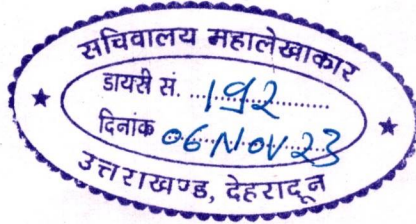 सचिवालय महालेखाकार
डायरी सं. 192
दिनांक 06 NOV 23
उत्तराखण्ड, देहरादून